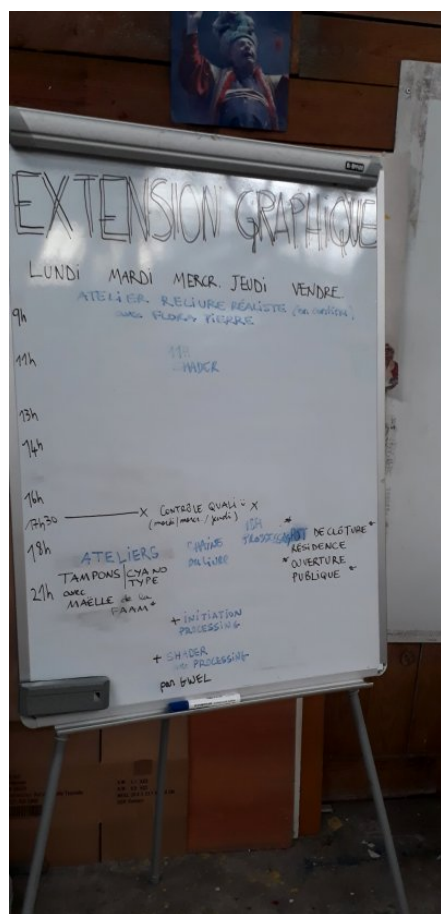 EXTENSION GRAPHIQUE
LUNDI MARDI MERCR. JEUDI VENDRE.
ATELIER RELIURE RÉALISTE
9h avec FLORA PIERRE
11h
13h
14h
16h
17h30 X CONTRÔLE QUALI X
(mardi/mercr./jeudi)
18h
ATELIERS
TAMPONS CYANO
TYPE
21h avec
MAËLLE de la
FAAM*
DU LIVRE
DE CLÔTURE*
RÉSIDENCE
*OUVERTURE
PUBLIQUE*
+ INITIATION
PROCESSING
+ SHADER
PROCESSING
par GWEL